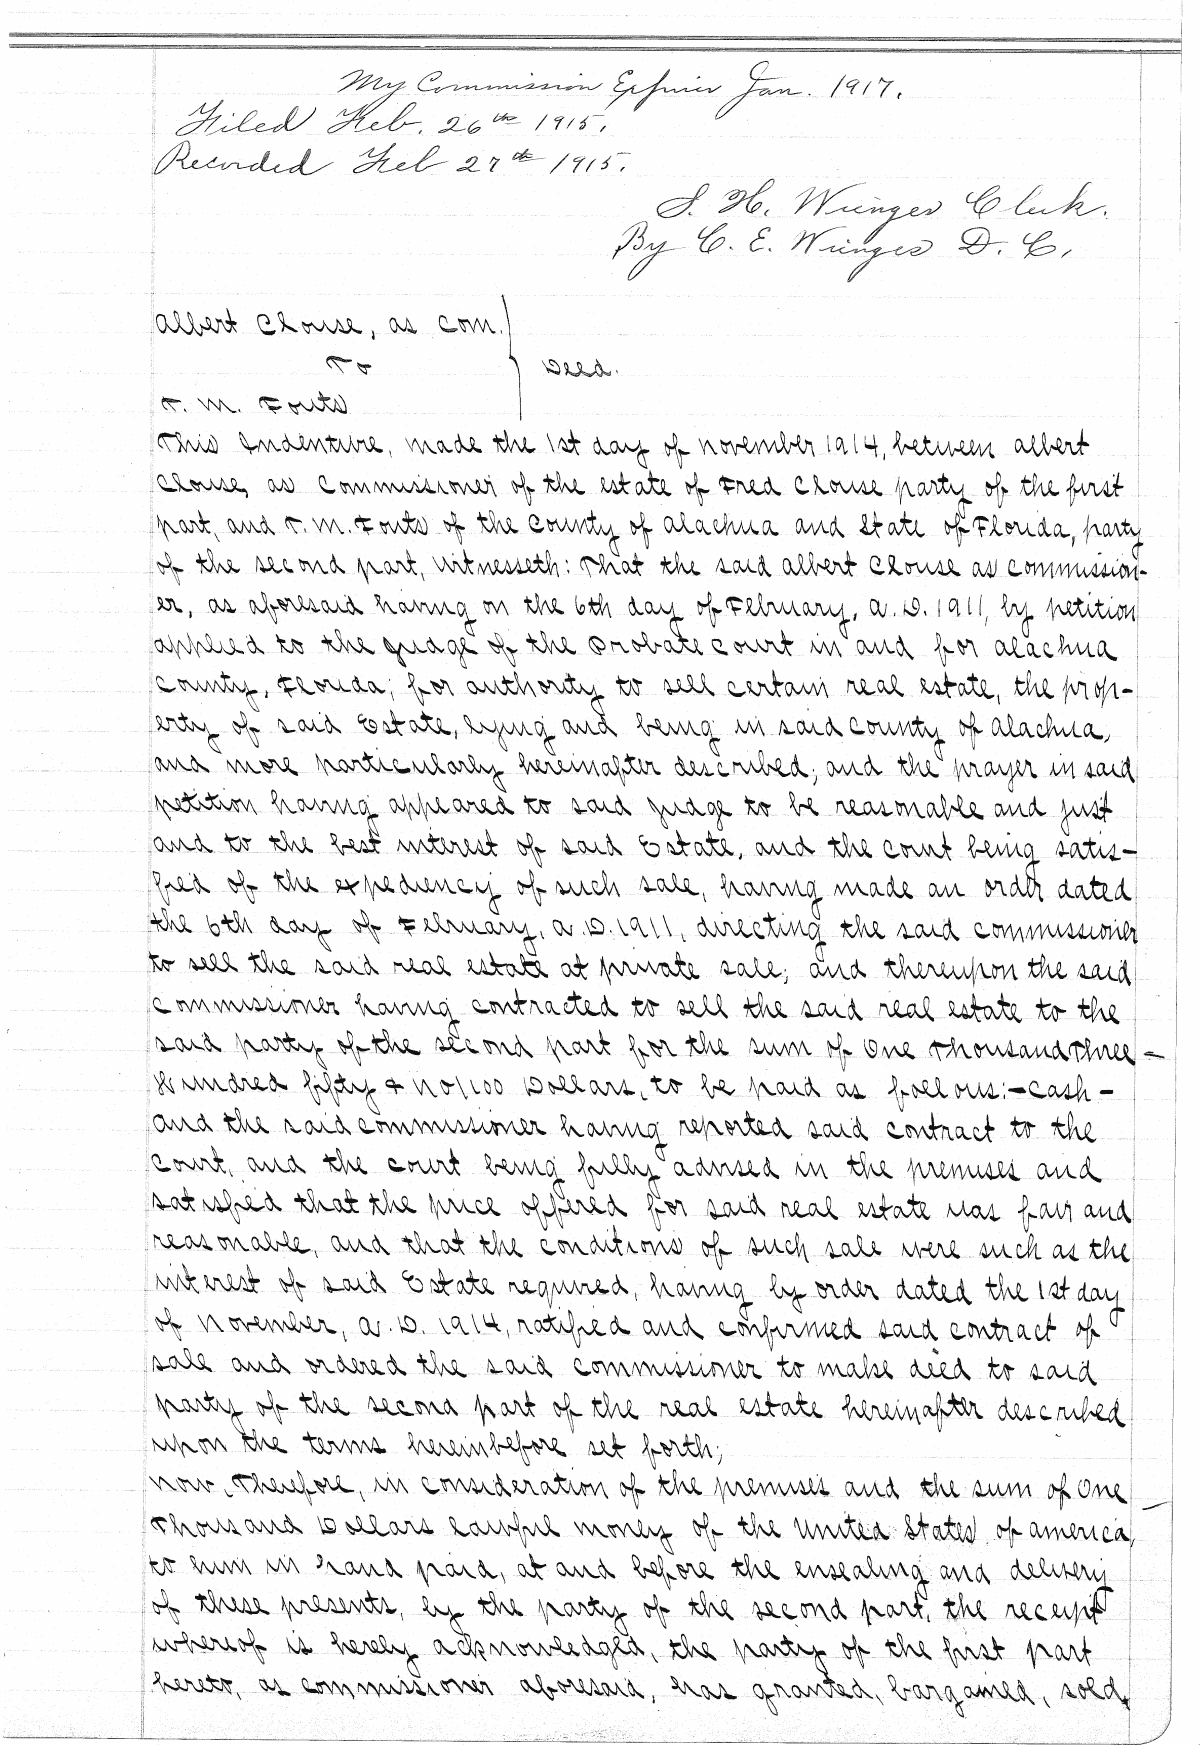 My Commission Expires Jan. 1917.
Filed Feb. 26th 1915.
Recorded Feb 27th 1915.
S. H. Wienges Clerk.
By C. E. Wienges D. C.
Albert Clouse, as Com.
To
Deed.
T. M. Fouts
This Indenture, made the 1st day of November 1914, between Albert
Clouse, as Commissioner of the estate of Fred Clouse party of the first
part, and T. M. Fouts of the County of Alachua and State of Florida, party
of the second part, Witnesseth: That the said Albert Clouse as commission-
er, as aforesaid having on the 6th day of February, A. D. 1911, by petition
applied to the Judge of the Probate Court in and for Alachua
County, Florida, for authority to sell certain real estate, the prop-
erty of said Estate, lying and being in said County of Alachua,
and more particularly hereinafter described; and the prayer in said
petition having appeared to said Judge to be reasonable and just
and to the best interest of said Estate, and the court being satis-
fied of the expediency of such sale, having made an order dated
the 6th day of February, A. D. 1911, directing the said commissioner
to sell the said real estate at private sale; and thereupon the said
Commissioner having contracted to sell the said real estate to the
said party of the second part for the sum of One Thousand Three -
Hundred fifty & no/100 Dollars, to be paid as follows:-cash-
and the said commissioner having reported said contract to the
Court, and the court being fully advised in the premises and
satisfied that the price offered for said real estate was fair and
reasonable, and that the conditions of such sale were such as the
interest of said Estate required, having by order dated the 1st day
of November, A. D. 1914, ratified and confirmed said contract of
sale and ordered the said commissioner to make deed to said
party of the second part of the real estate hereinafter described
upon the terms hereinbefore set forth;
Now, Therefore, in consideration of the premises and the sum of One
Thousand Dollars lawful money of the United States of America,
to him in hand paid, at and before the ensealing and delivery
of these presents, by the party of the second part, the receipt
whereof is hereby acknowledged, the party of the first part
hereto, as commissioner aforesaid, has granted, bargained, sold,